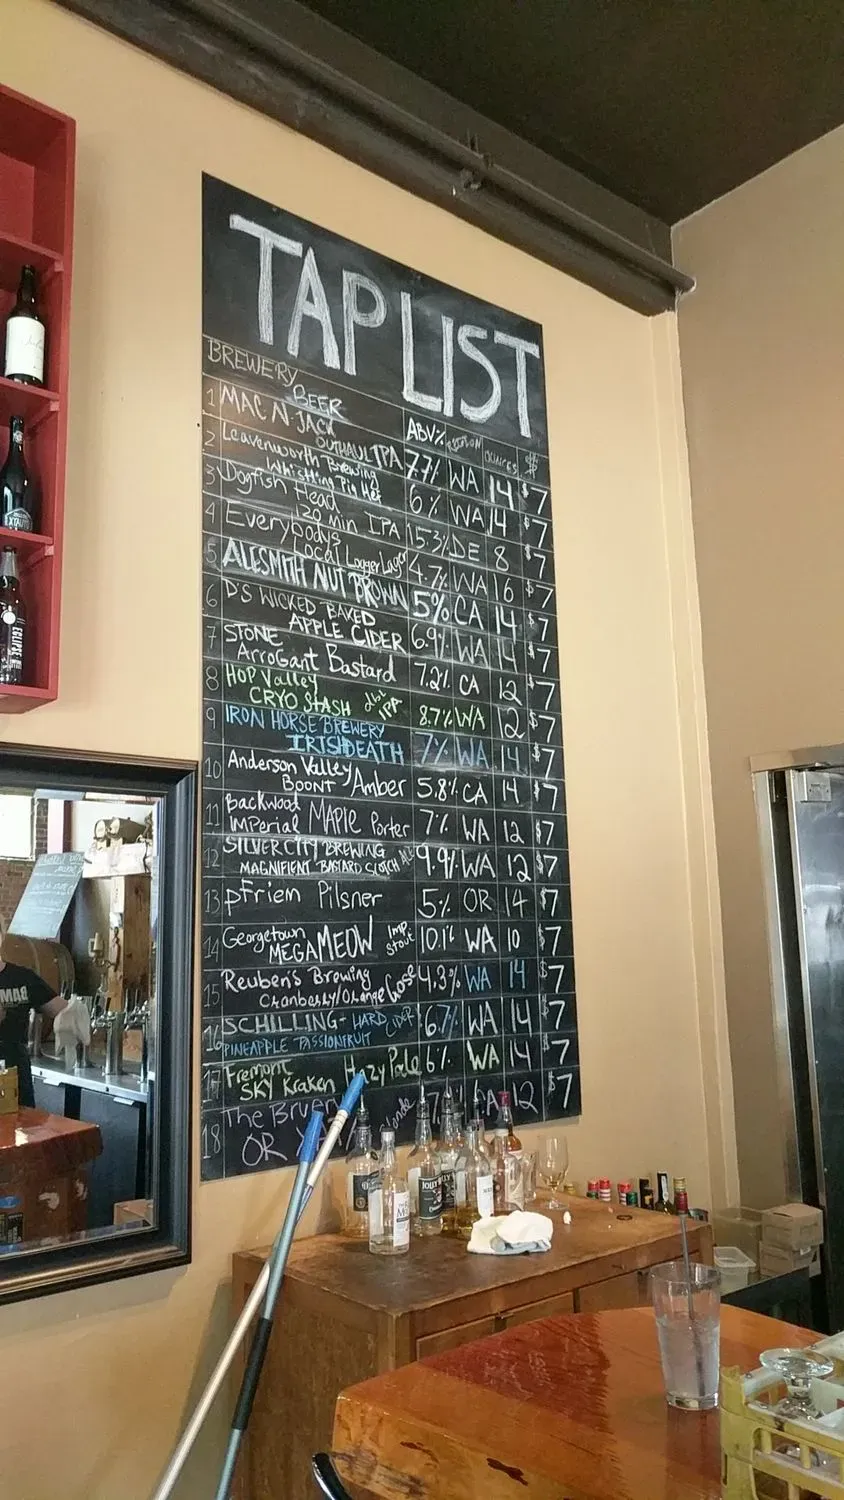 TAP LIST
BREWERY BEER ABV% REGION OUNCES $
1 MAC N JACK
OUTHAUL IPA 7.7% WA 14 $7
2 Leavenworth Brewing
Whistling Pig Hef 6% WA 14 $7
3 Dogfish Head
120 Min IPA 15.3% DE 8 $7
4 Everybodys
Local Logger Lager 4.7% WA 16 $7
5 ALESMITH NUT BROWN 5% CA 14 $7
6 D'S WICKED BAKED
APPLE CIDER 6.9% WA 14 $7
7 STONE
ArroGant Bastard 7.2% CA 12 $7
8 HOP Valley
CRYO STASH dbl IPA 8.7% WA 12 $7
9 IRON HORSE BREWERY
IRISH DEATH 7% WA 14 $7
10 Anderson Valley
BOONT Amber 5.8% CA 14 $7
11 Backwood
Imperial MAPLE Porter 7% WA 12 $7
12 SILVER CITY BREWING
MAGNIFIENT BASTARD SCOTCH ALE 9.9% WA 12 $7
13 pFriem Pilsner 5% OR 14 $7
14 Georgetown
MEGAMEOW Imp Stout 10.1% WA 10 $7
15 Reuben's Brewing
Cranberry/Orange Gose 4.3% WA 14 $7
16 SCHILLING - HARD CIDER
PINEAPPLE PASSIONFRUIT 6.7% WA 14 $7
17 Fremont
SKY Kraken Hazy Pale 6% WA 14 $7
18 The Bruery
OR 12 $7